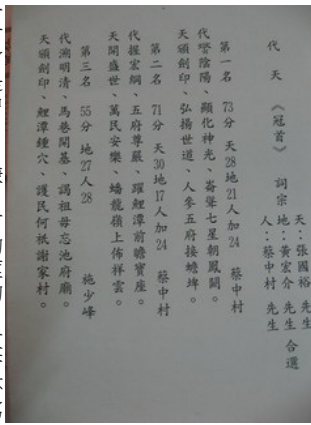 代 天 《冠首》 詞宗 天：張國裕 先生 地：黃宏介 先生 人：蔡中村 先生 合選
第一名 73分 天28地21人加24 蔡中村
代燮陰陽、顯化神光、崙聳七星朝鳳闕。
天頒劍印、弘揚世道、人參五府接蟾埤。
第二名 71分 天30地17人加24 蔡中村
代握宏綱、五府尊嚴、躍鯉潭前瞻寶座。
天開盛世、萬民安樂、蟠龍嶺上佈祥雲。
第三名 55分 地27人28 施少峰
代溯明清、馬巷開基、謁祖毋忘池府廟。
天頒劍印、鯉潭鍾穴、護民何祇謝家村。